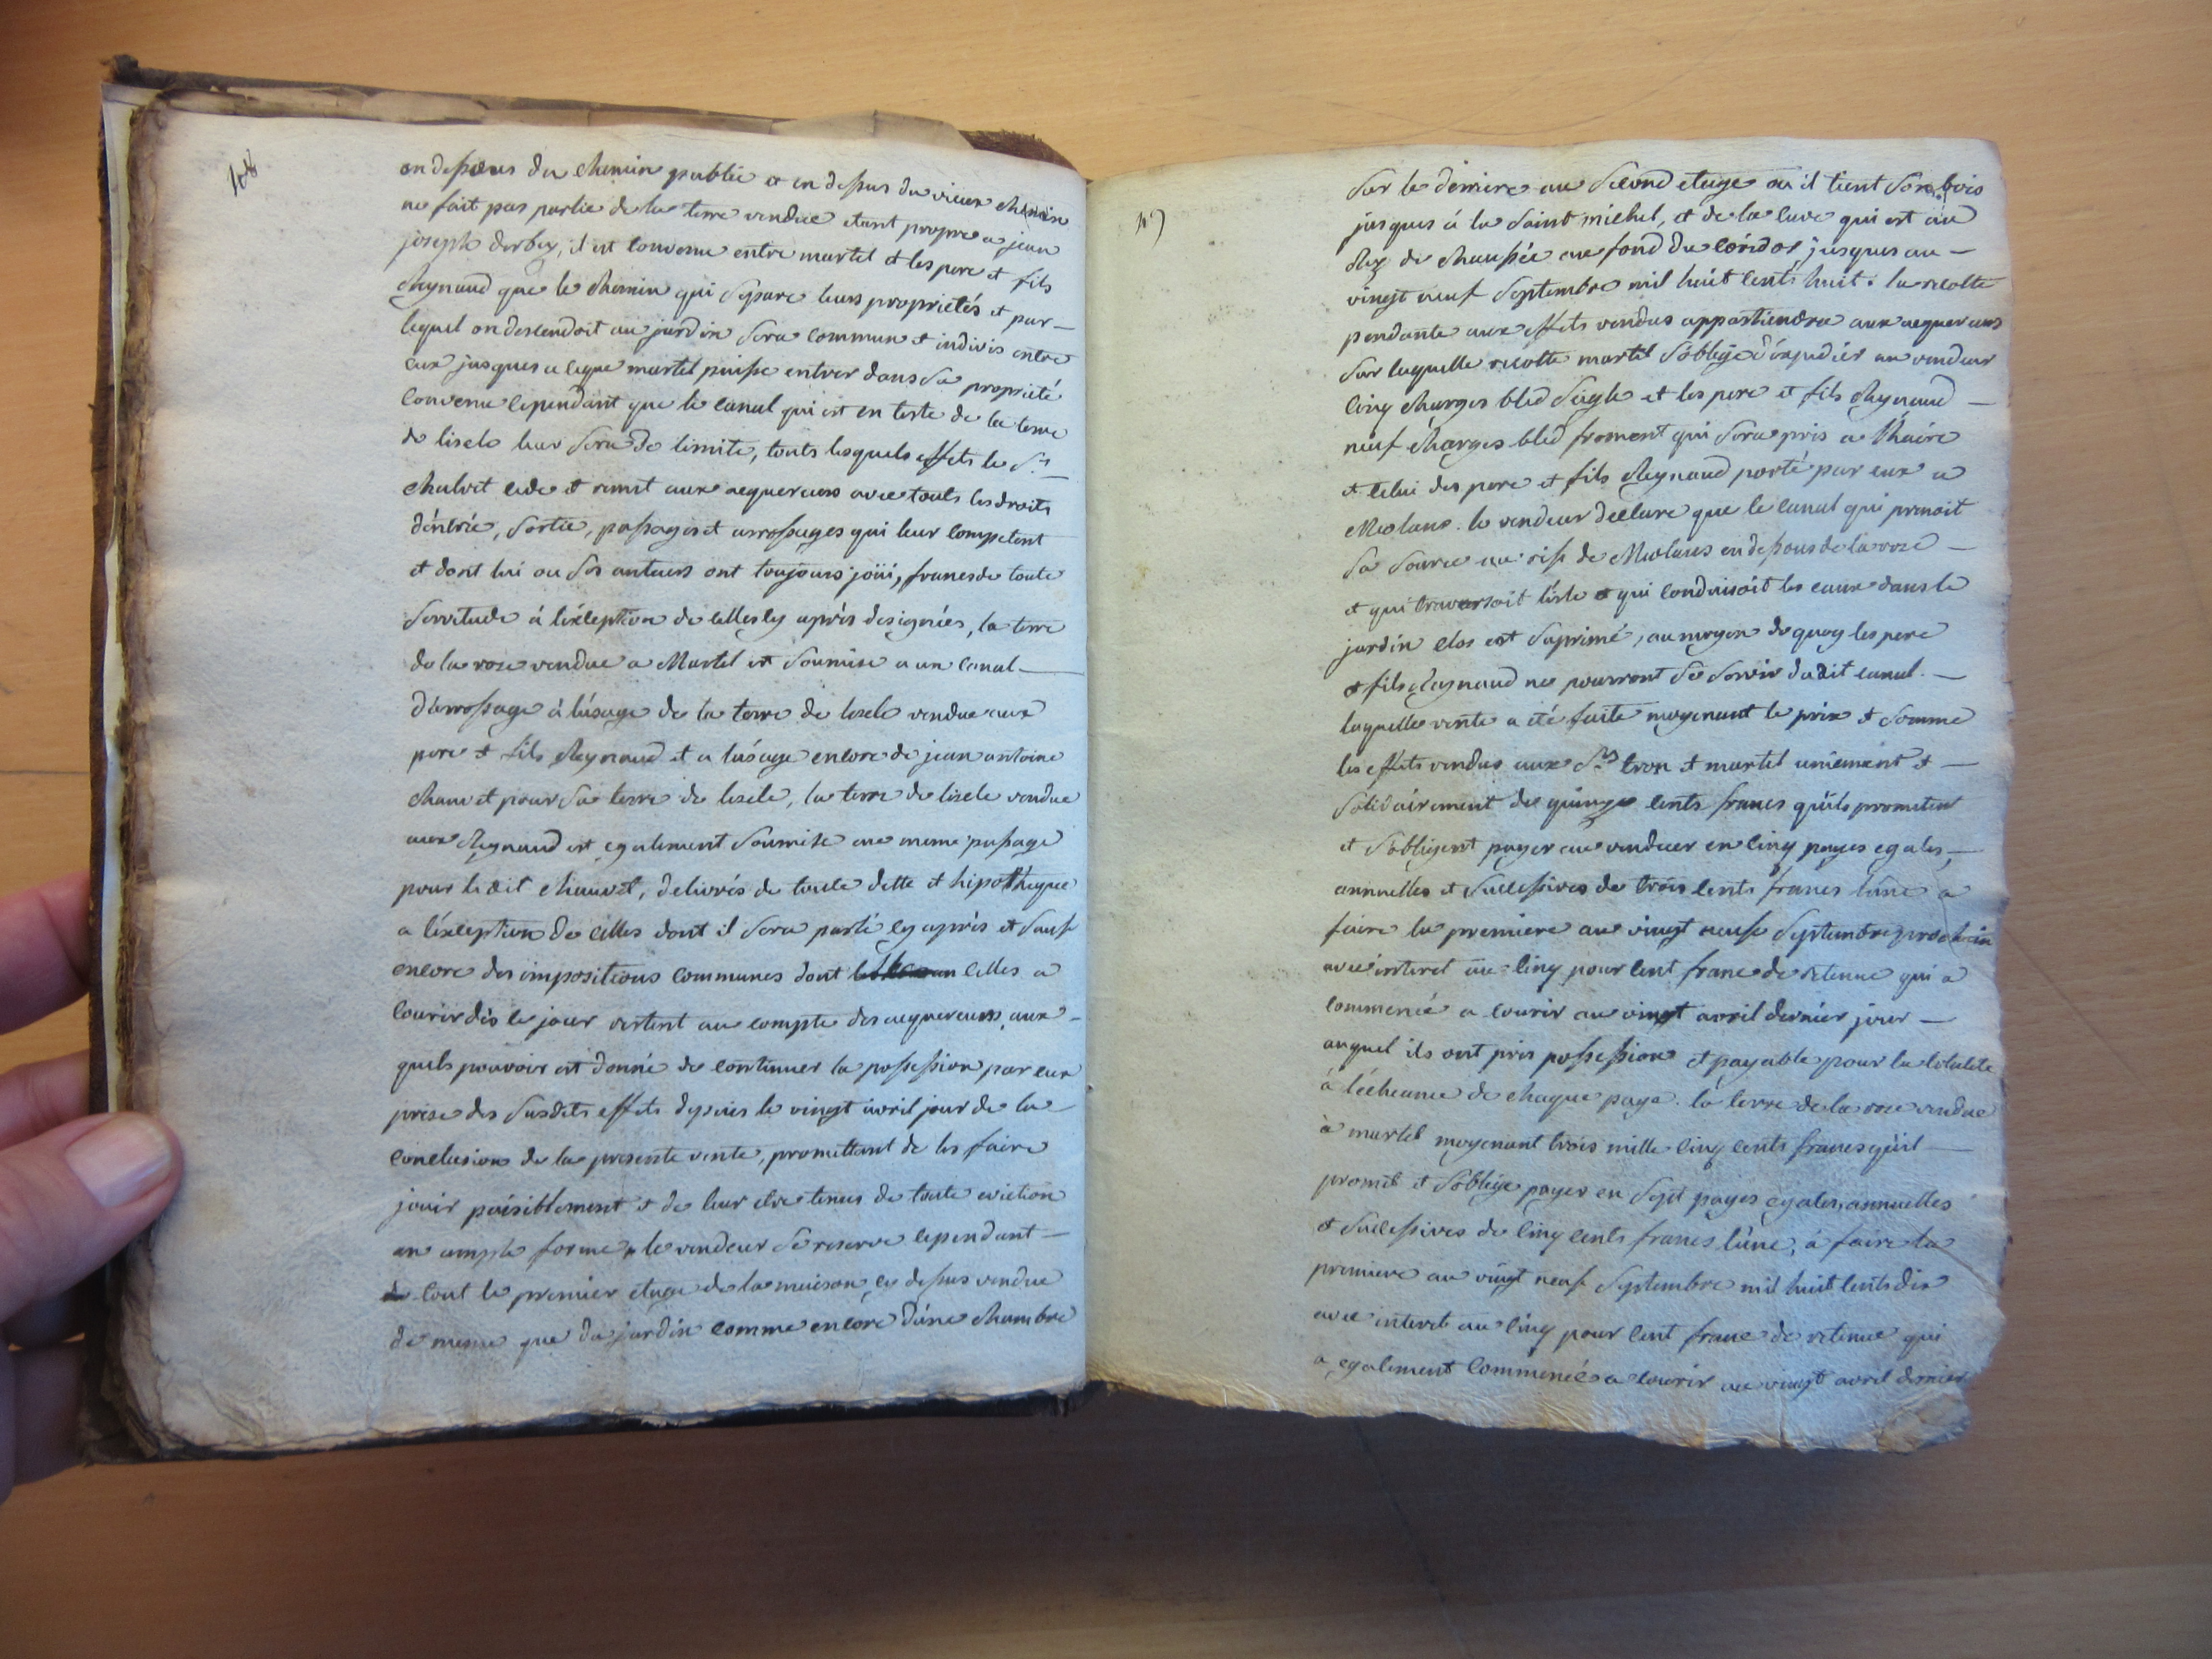 108
en dessous du chemin public et en dessus du vieux chemin
ne fait pas partie de la terre vendue etant propre a jean
joseph derbez, il est convenu entre martel et les pere et fils
Reynaud que le chemin qui separe leurs proprietés et par —
lequel on descendoit au jardin sera commun et indivis entre
eux jusques a ceque martel puisse entrer dans sa proprieté
convenu cependant que le canal qui est en teste de la terre
de liscle leur sera de limite, touts lesquels effets le Sr —
chalvet cede et remet aux aequereurs avec touts les droits
d'éntrée, sortie, passages et arrosages qui leur competent
et dont lui ou ses auteurs ont toujours joüi, francs de toute
servitude à l'éxception de celles cy après designées, la terre
de la roze vendue a Martel est soumise a un canal —
d'arrosage à l'úsage de la terre de liscle vendue aux
pere et fils Reynaud et a l'usage encore de jean antoine
chauvet pour sa terre de liscle, la terre de liscle vendue
aux Reynaud est egalement soumise au meme passage
pour le dit chauvet, delivrés de toute dette et hipotheque
a l'éxception de celles dont il sera parlé cy après et sauf
encore des impositions communes dont celles a
courir dès le jour restent au compte des aequereurs, aux —
quels pouvoir est donné de continuer la possession par eux
prise des susdits effets depuis le vingt avril jour de la
conclusion de la presente vente, promettant de les faire
jouir paisiblement et de leur etre tenus de toute eviction
en ample forme, le vendeur se reserve cependant —
tout le premier etage de la maison cy dessus vendue
de meme que du jardin comme encore d'úne chambre
sur le derriere au second etage ou il tient son bois
jusques à la saint michel, et de la cave qui est au
Rez de chaussée au fond du coridor, jusques au —
vingt neuf septembre mil huit cents huit. la recolte
pendante aux effets vendus appartiendra aux aequereurs
sur laquelle recolte martel s'oblige d'éxpedier au vendeur
cinq charges bled seigle et les pere et fils Reynaud —
neuf charges bled froment qui sera pris a l'haire
et celui des pere et fils Reynaud porté par eux a
Meolans. le vendeur declare que le canal qui prenoit
sa source au rif de Meolans en dessous de la roze —
et qui traversoit liscle et qui conduisoit les eaux dans le
jardin clos est suprimé, au moyen de quoy les pere
et fils Reynaud ne pourront se servir dudit canal. —
laquelle vente a été faite moyenant le prix et somme
les effets vendus aux Srs tron et martel uniement et —
solidairement de quinze cents francs qu'ils promettent
et s'obligent payer au vendeur en cinq payes egales, —
annuelles et successives de trois cents francs l'úne a
faire la premiere au vingt neuf septembre prochain
avec interet au cinq pour cent franc de retenue qui a
commencé a courir au vingt avril dernier jour —
auquel ils ont pris possession et payable pour la totalité
à l'écheance de chaque paye. la terre de la roze vendue
à martel moyenant trois mille cinq cents francs qu'il —
promet et s'oblige payer en sept payes egales, annuelles
et successives de cinq cents francs l'úne, à faire la
premiere au vingt neuf septembre mil huit cents dix
avec interet au cinq pour cent franc de retenue qui
a egalement commencé a courir au vingt avril dernier